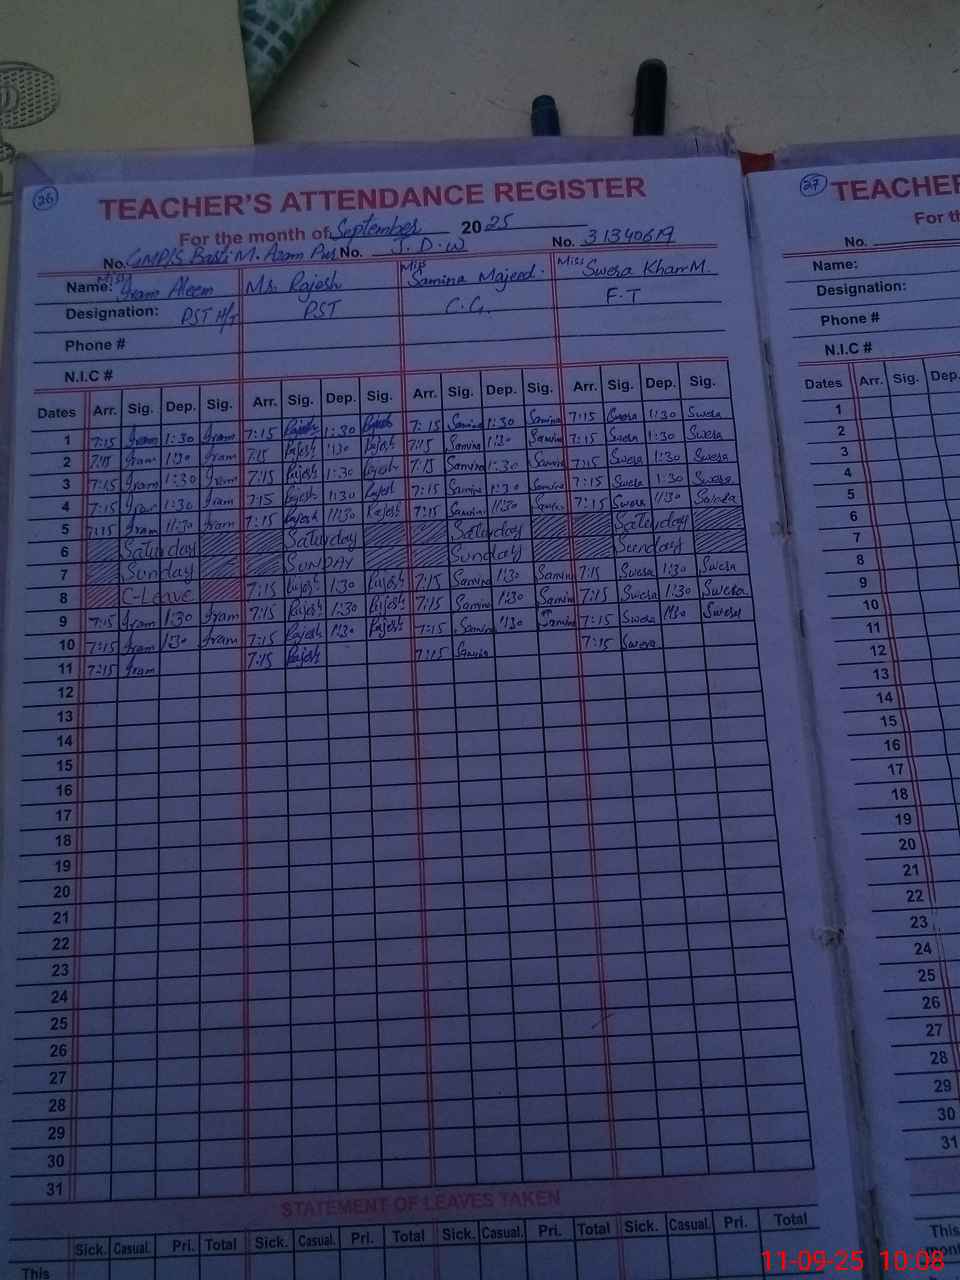 26
TEACHER'S ATTENDANCE REGISTER
For the month of September 2025
No. GMP/S Basti M. Azam Pur No. J.D.W No. 31340619
Name: Miss Iram Aleem Mr. Rajesh Miss Samina Majeed. Miss Swera Khan M.
Designation: PST H/T PST C.G. F.T
Phone #
N.I.C #
Dates Arr. Sig. Dep. Sig. Arr. Sig. Dep. Sig. Arr. Sig. Dep. Sig. Arr. Sig. Dep. Sig.
1 7:15 Iram 1:30 Iram 7:15 Rajesh 1:30 Rajesh 7:15 Samina 1:30 Samina 7:15 Swera 1:30 Swera
2 7:15 Iram 1:30 Iram 7:15 Rajesh 1:30 Rajesh 7:15 Samina 1:30 Samina 7:15 Swera 1:30 Swera
3 7:15 Iram 1:30 Iram 7:15 Rajesh 1:30 Rajesh 7:15 Samina 1:30 Samina 7:15 Swera 1:30 Swera
4 7:15 Iram 1:30 Iram 7:15 Rajesh 1:30 Rajesh 7:15 Samina 1:30 Samina 7:15 Swera 1:30 Swera
5 7:15 Iram 11:30 Iram 7:15 Rajesh 11:30 Rajesh 7:15 Samina 11:30 Samina 7:15 Swera 11:30 Swera
6 Saturday Saturday Saturday Saturday
7 Sunday SUNDAY Sunday Sunday
8 C-Leave 7:15 Rajesh 1:30 Rajesh 7:15 Samina 1:30 Samina 7:15 Swera 1:30 Swera
9 7:15 Iram 1:30 Iram 7:15 Rajesh 1:30 Rajesh 7:15 Samina 1:30 Samina 7:15 Swera 1:30 Swera
10 7:15 Iram 1:30 Iram 7:15 Rajesh 1:30 Rajesh 7:15 Samina 1:30 Samina 7:15 Swera 1:30 Swera
11 7:15 Iram 7:15 Rajesh 7:15 Samina 7:15 Swera
12
13
14
15
16
17
18
19
20
21
22
23
24
25
26
27
28
29
30
31
STATEMENT OF LEAVES TAKEN
Sick. Casual. Pri. Total Sick. Casual. Pri. Total Sick. Casual. Pri. Total Sick. Casual. Pri. Total
This
27
TEACHER
For th
No.
Name:
Designation:
Phone #
N.I.C #
Dates Arr. Sig. Dep.
1
2
3
4
5
6
7
8
9
10
11
12
13
14
15
16
17
18
19
20
21
22
23
24
25
26
27
28
29
30
31
This
11-09-25 10:08